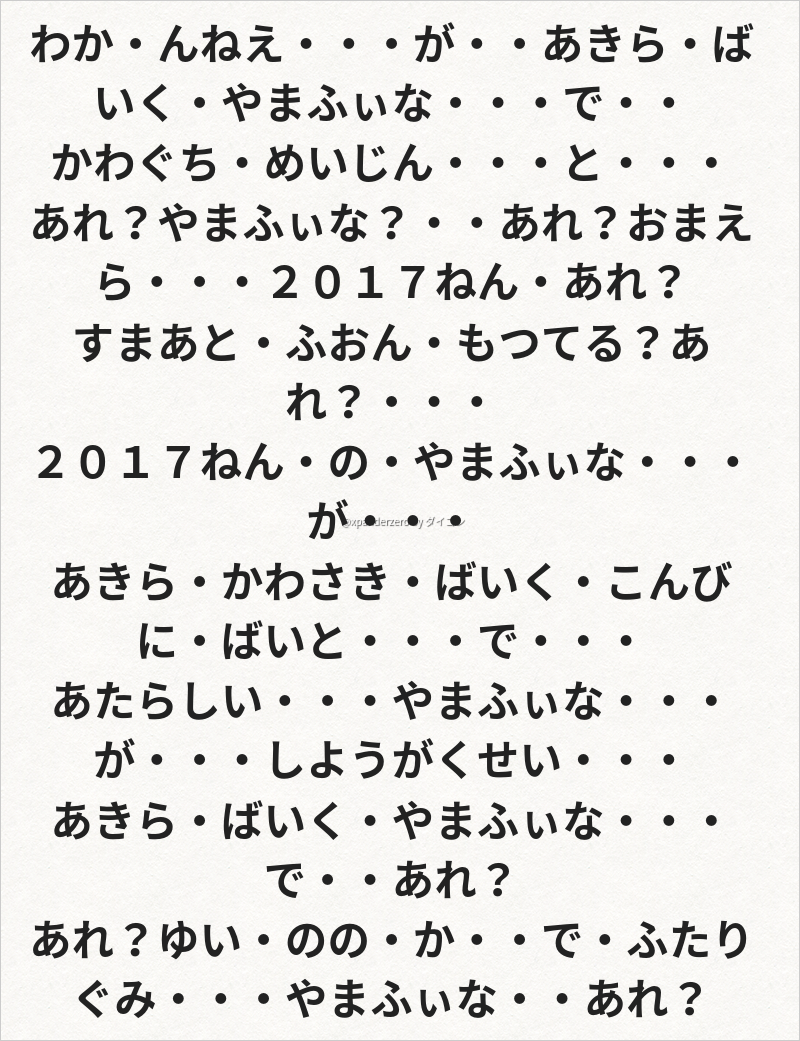 わか・んねえ・・・が・・あきら・ば
いく・やまふぃな・・・で・・
かわぐち・めいじん・・・と・・・
あれ？やまふぃな？・・あれ？おまえ
ら・・・２０１７ねん・あれ？
すまあと・ふおん・もつてる？あ
れ？・・・
２０１７ねん・の・やまふぃな・・・
が・・・
あきら・かわさき・ばいく・こんび
に・ばいと・・・で・・・
あたらしい・・・やまふぃな・・・
が・・・しようがくせい・・・
あきら・ばいく・やまふぃな・・・
で・・あれ？
あれ？ゆい・のの・か・・で・ふたり
ぐみ・・・やまふぃな・・あれ？